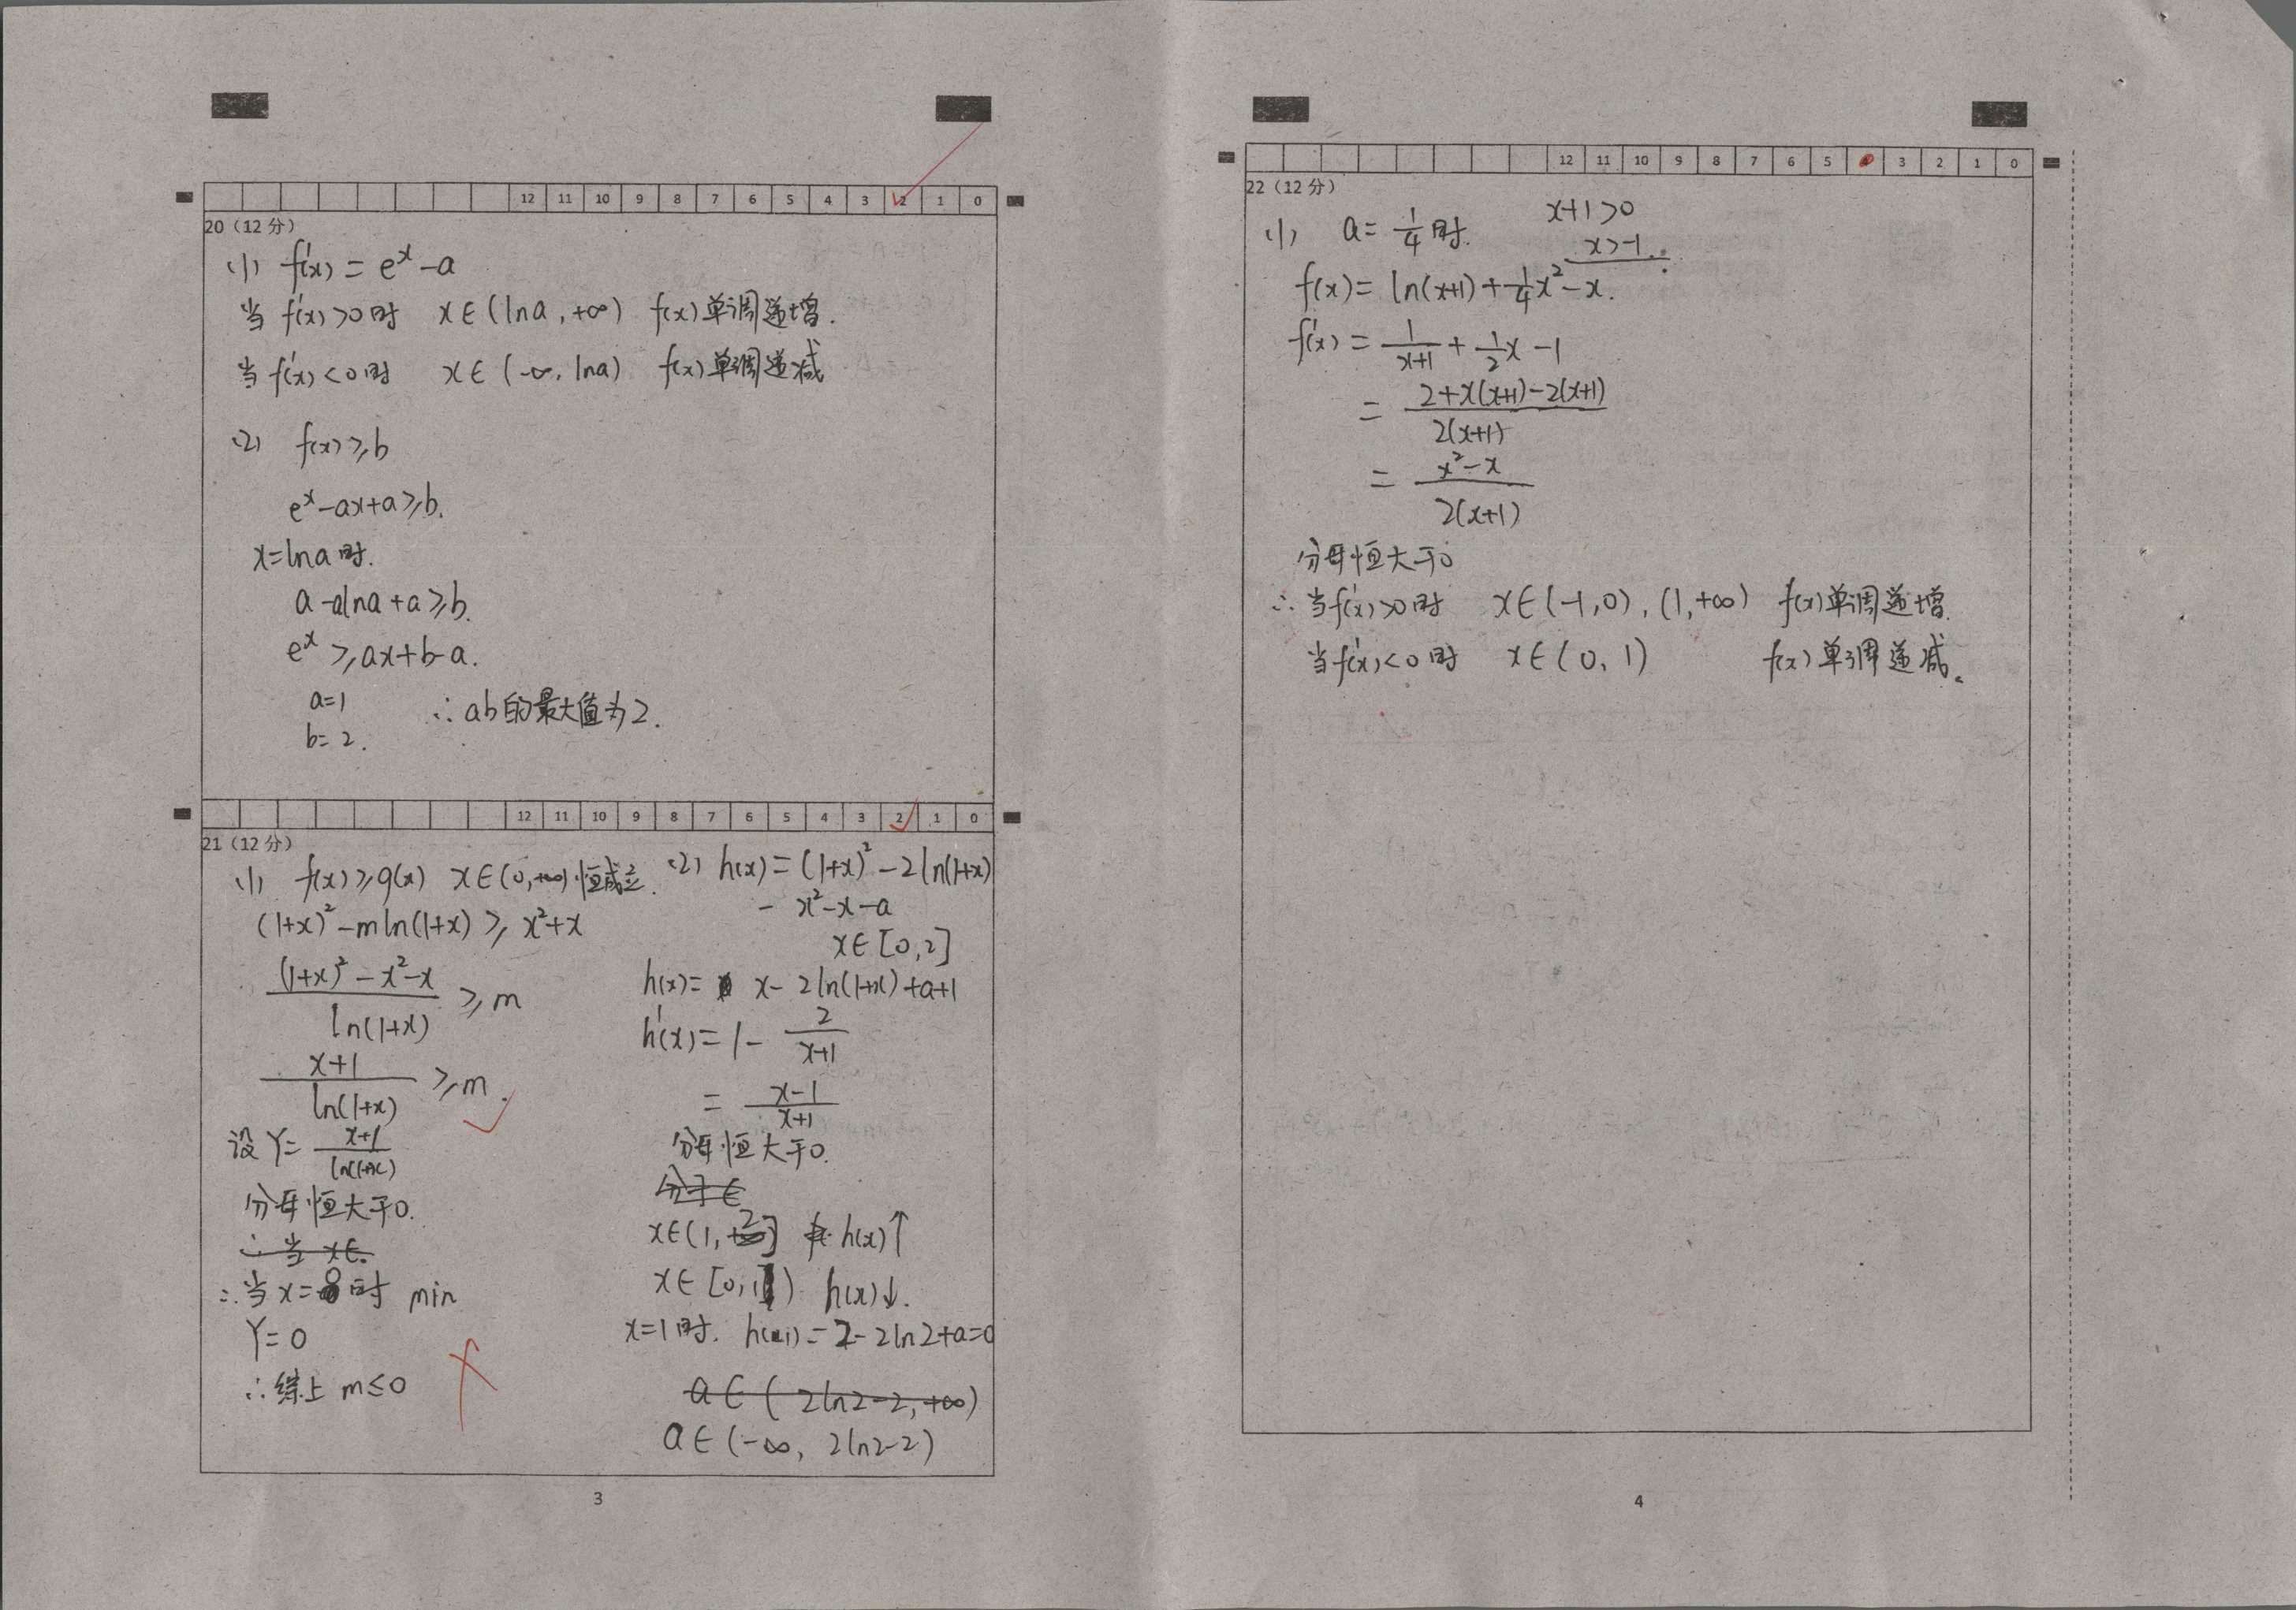 12 11 10 9 8 7 6 5 4 3 2 1 0
20（12 分）
(1) f'(x) = e^x - a
当 f'(x) > 0 时 x∈(lna, +∞) f(x) 单调递增.
当 f'(x) < 0 时 x∈(-∞, lna) f(x) 单调递减
(2) f(x) ≥ b
e^x - ax + a ≥ b.
x = lna 时.
a - alna + a ≥ b.
e^x ≥ ax + b - a.
a = 1
∴ ab 的最大值为 2.
b = 2.
12 11 10 9 8 7 6 5 4 3 2 1 0
21（12 分）
(1) f(x) ≥ g(x) x∈(0, +∞) 恒成立.
(1+x)² - mln(1+x) ≥ x² + x
(1+x)² - x² - x / ln(1+x) ≥ m
x+1 / ln(1+x) ≥ m.
设 Y = x+1 / ln(1+x)
分母恒大于0.
∴ 当 x∈.
∴ 当 x = 0 时 min
Y = 0
∴ 综上 m ≤ 0
(2) h(x) = (1+x)² - 2ln(1+x)
- x² - x - a
x∈[0, 2]
h(x) = x - 2ln(1+x) + a + 1
h'(x) = 1 - 2 / x+1
= x-1 / x+1
分母恒大于0.
分子∈
x∈(1, 2] h(x)↑
x∈[0, 1) h(x)↓.
x = 1 时. h(1) = 2 - 2ln2 + a = 0
a∈(2ln2-2, +∞)
a∈(-∞, 2ln2-2)
3
12 11 10 9 8 7 6 5 3 2 1 0
22（12 分）
(1) a = 1/4 时.
x+1 > 0
x > -1.
f(x) = ln(x+1) + 1/4 x² - x.
f'(x) = 1 / x+1 + 1/2 x - 1
= 2 + x(x+1) - 2(x+1) / 2(x+1)
= x² - x / 2(x+1)
分母恒大于0
∴ 当 f'(x) > 0 时 x∈(-1, 0), (1, +∞) f(x) 单调递增.
当 f'(x) < 0 时 x∈(0, 1) f(x) 单调递减。
4